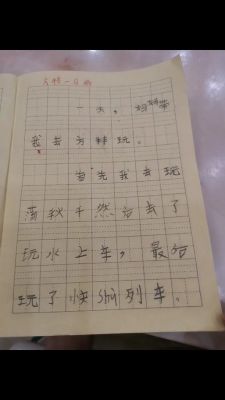 方特一日游
一天，妈妈带
我去方特玩。
首先我去玩
荡秋千然后去了
玩水上车，最后
玩了快shu列车。